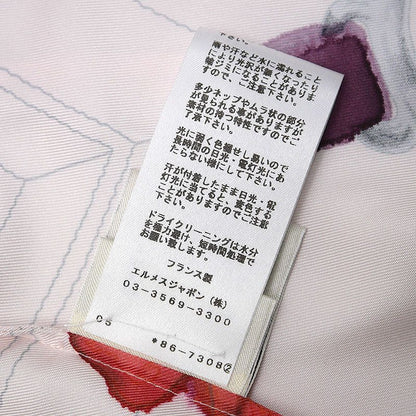 下さい。
雨や汗など水に濡れること
により光沢が無くなったり
輪ジミになることがありま
すので、ご注意下さい。
多少ネップやムラ状の部分
が見られる事がありますが
素材の持つ特性ですのでご
了承下さい。
光に弱く色褪せし易いので
長時間の日光・電灯光にあ
たらない様にして下さい。
汗が付着したまま日光・電
灯光に当てると、変色する
ことがありますのでご注意
下さい。
ドライクリーニングは水分
を極力避け、短時間処理で
お願い致します。
フランス製
エルメスジャポン（株）
03－3569－3300
05
*86-7308②